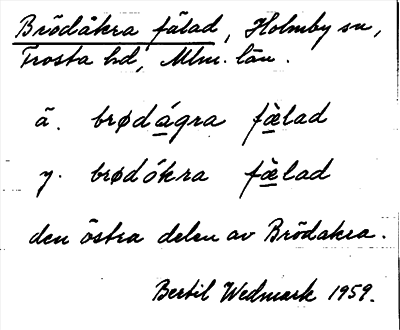 Brödåkra fälad, Holmby sn,
Frosta hd, Mlm. län.
ä. brødágra fæ̀lad
y. brødókra fæ̀lad
den östra delen av Brödåkra.
Bertil Wedmark 1959.